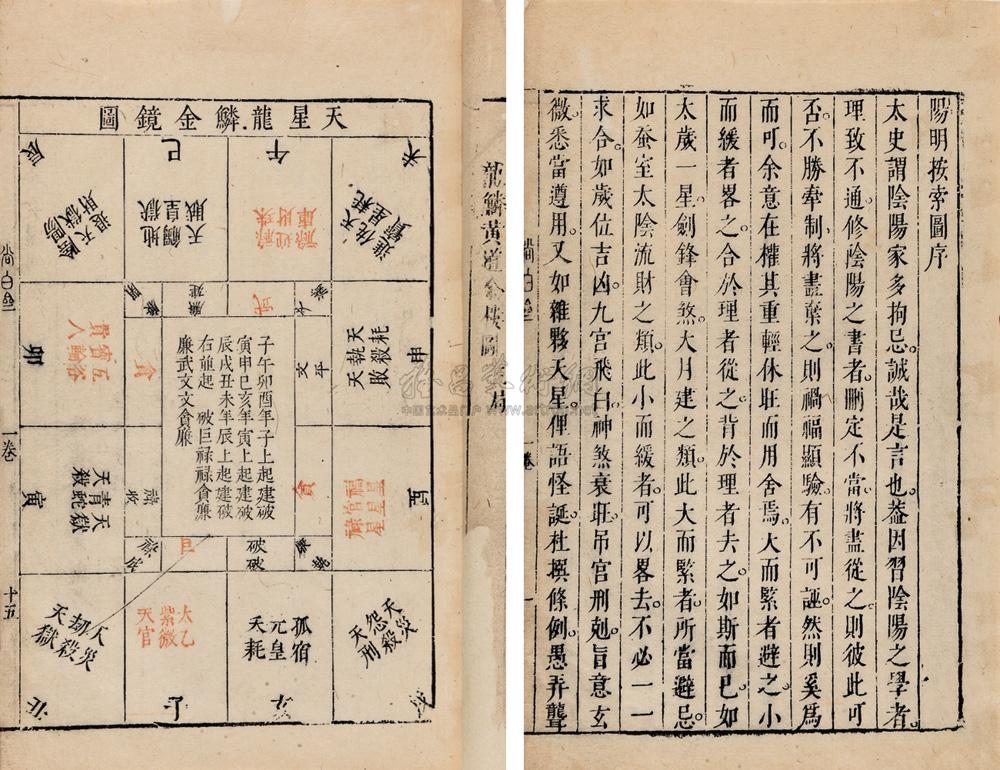 陽明按索圖序
太史謂陰陽家多拘忌誠哉是言也葢因習陰陽之學者
理致不通修陰陽之書者刪定不當將盡從之則彼此可
否不勝牽制將盡棄之則禍福顯驗有不可誣然則奚爲
而可余意在權其重輕休旺而用舍焉大而緊者避之小
而緩者畧之合於理者從之背於理者去之如斯而已如
太歲一星劍鋒會煞大月建之類此大而緊者所當避忌
如蚕室太陰流財之類此小而緩者可以畧去不必一一
求合如歲位吉凶九宮飛白神煞衰旺吊官刑剋旨意玄
微悉當遵用又如雜夥天星俚語怪誕杜撰條例愚弄聾
尚白齋
卷
一
龍鱗黃道金樓圖局
天星龍鱗金鏡圖
未
午
巳
辰
進侍天
寶星耗
祿迎祿
庫財珠
天觸地
賊皇獄
退天陰
財獄陽
申
天執天
耗殺敗
文平
武
廉建
卯
貪賓五輸洛
人
貪
子午卯酉年子上起建破
寅申巳亥年寅上起建破
辰戌丑未年辰上起建破
右龍起 破巨祿祿貪廉
廉武文文貪廉
酉
福官祿
星星星
貪
寅
天青天
殺蛇獄
破破
巨
祿成
戌
天怨天
災殺刑
亥
孤元天
宿皇耗
子
太紫天
乙微官
丑
人劫天
災殺獄
尚白齋
一卷
十五